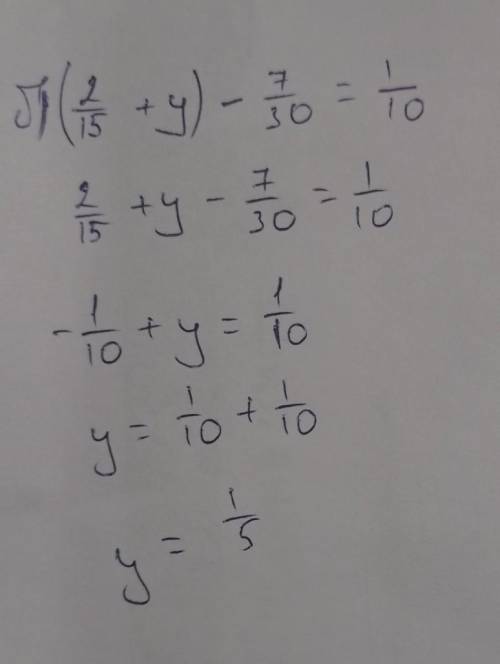 (2/15 + y) - 7/30 = 1/10
2/15 + y - 7/30 = 1/10
- 1/10 + y = 1/10
y = 1/10 + 1/10
y = 1/5